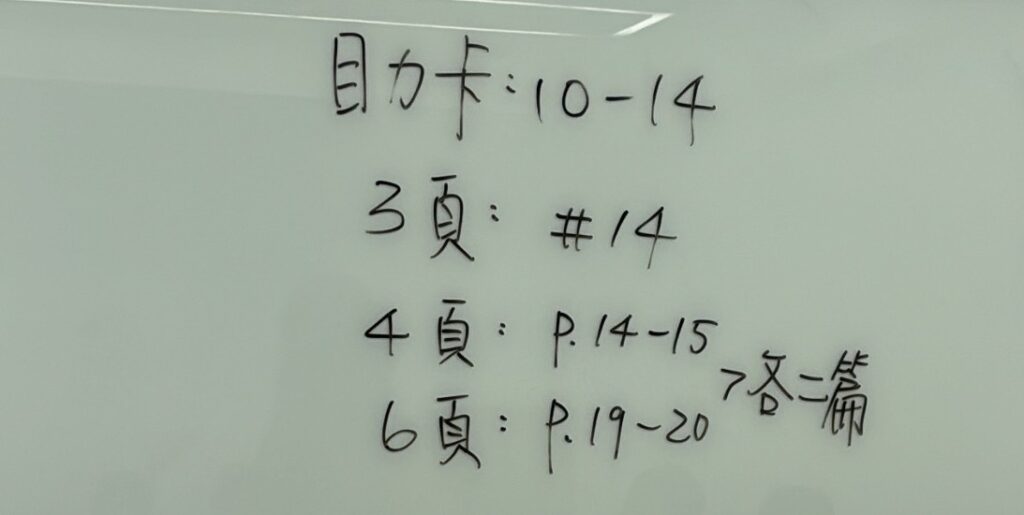 目力卡:10-14
3頁: #14
4頁: p.14-15
6頁: p.19-20
>各二篇